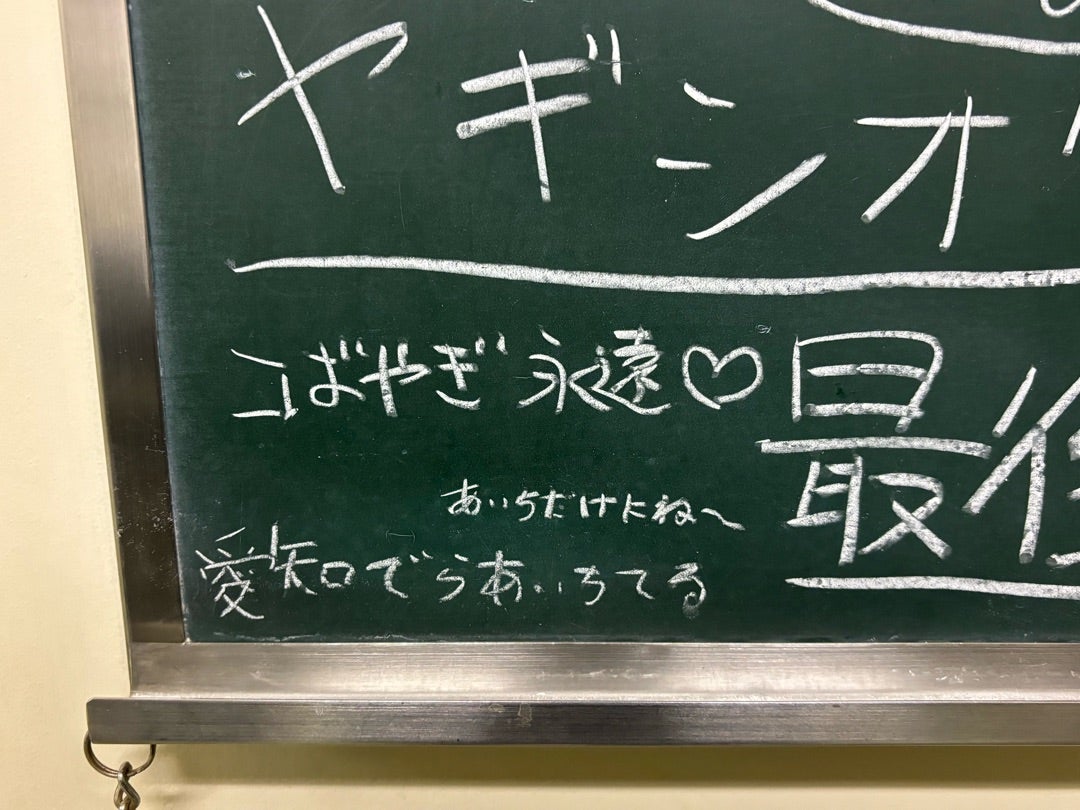 ヤギシオ
こばやぎ永遠♡
最後
あいちだけにね〜
愛知でらあいちてる